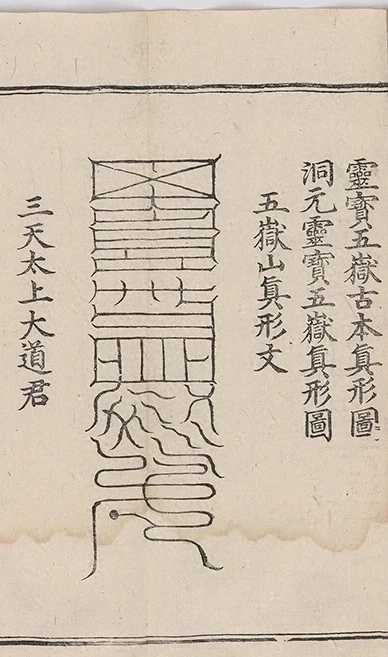 靈寶五嶽古本真形圖
洞元靈寶五嶽真形圖
五嶽山真形文
三天太上大道君